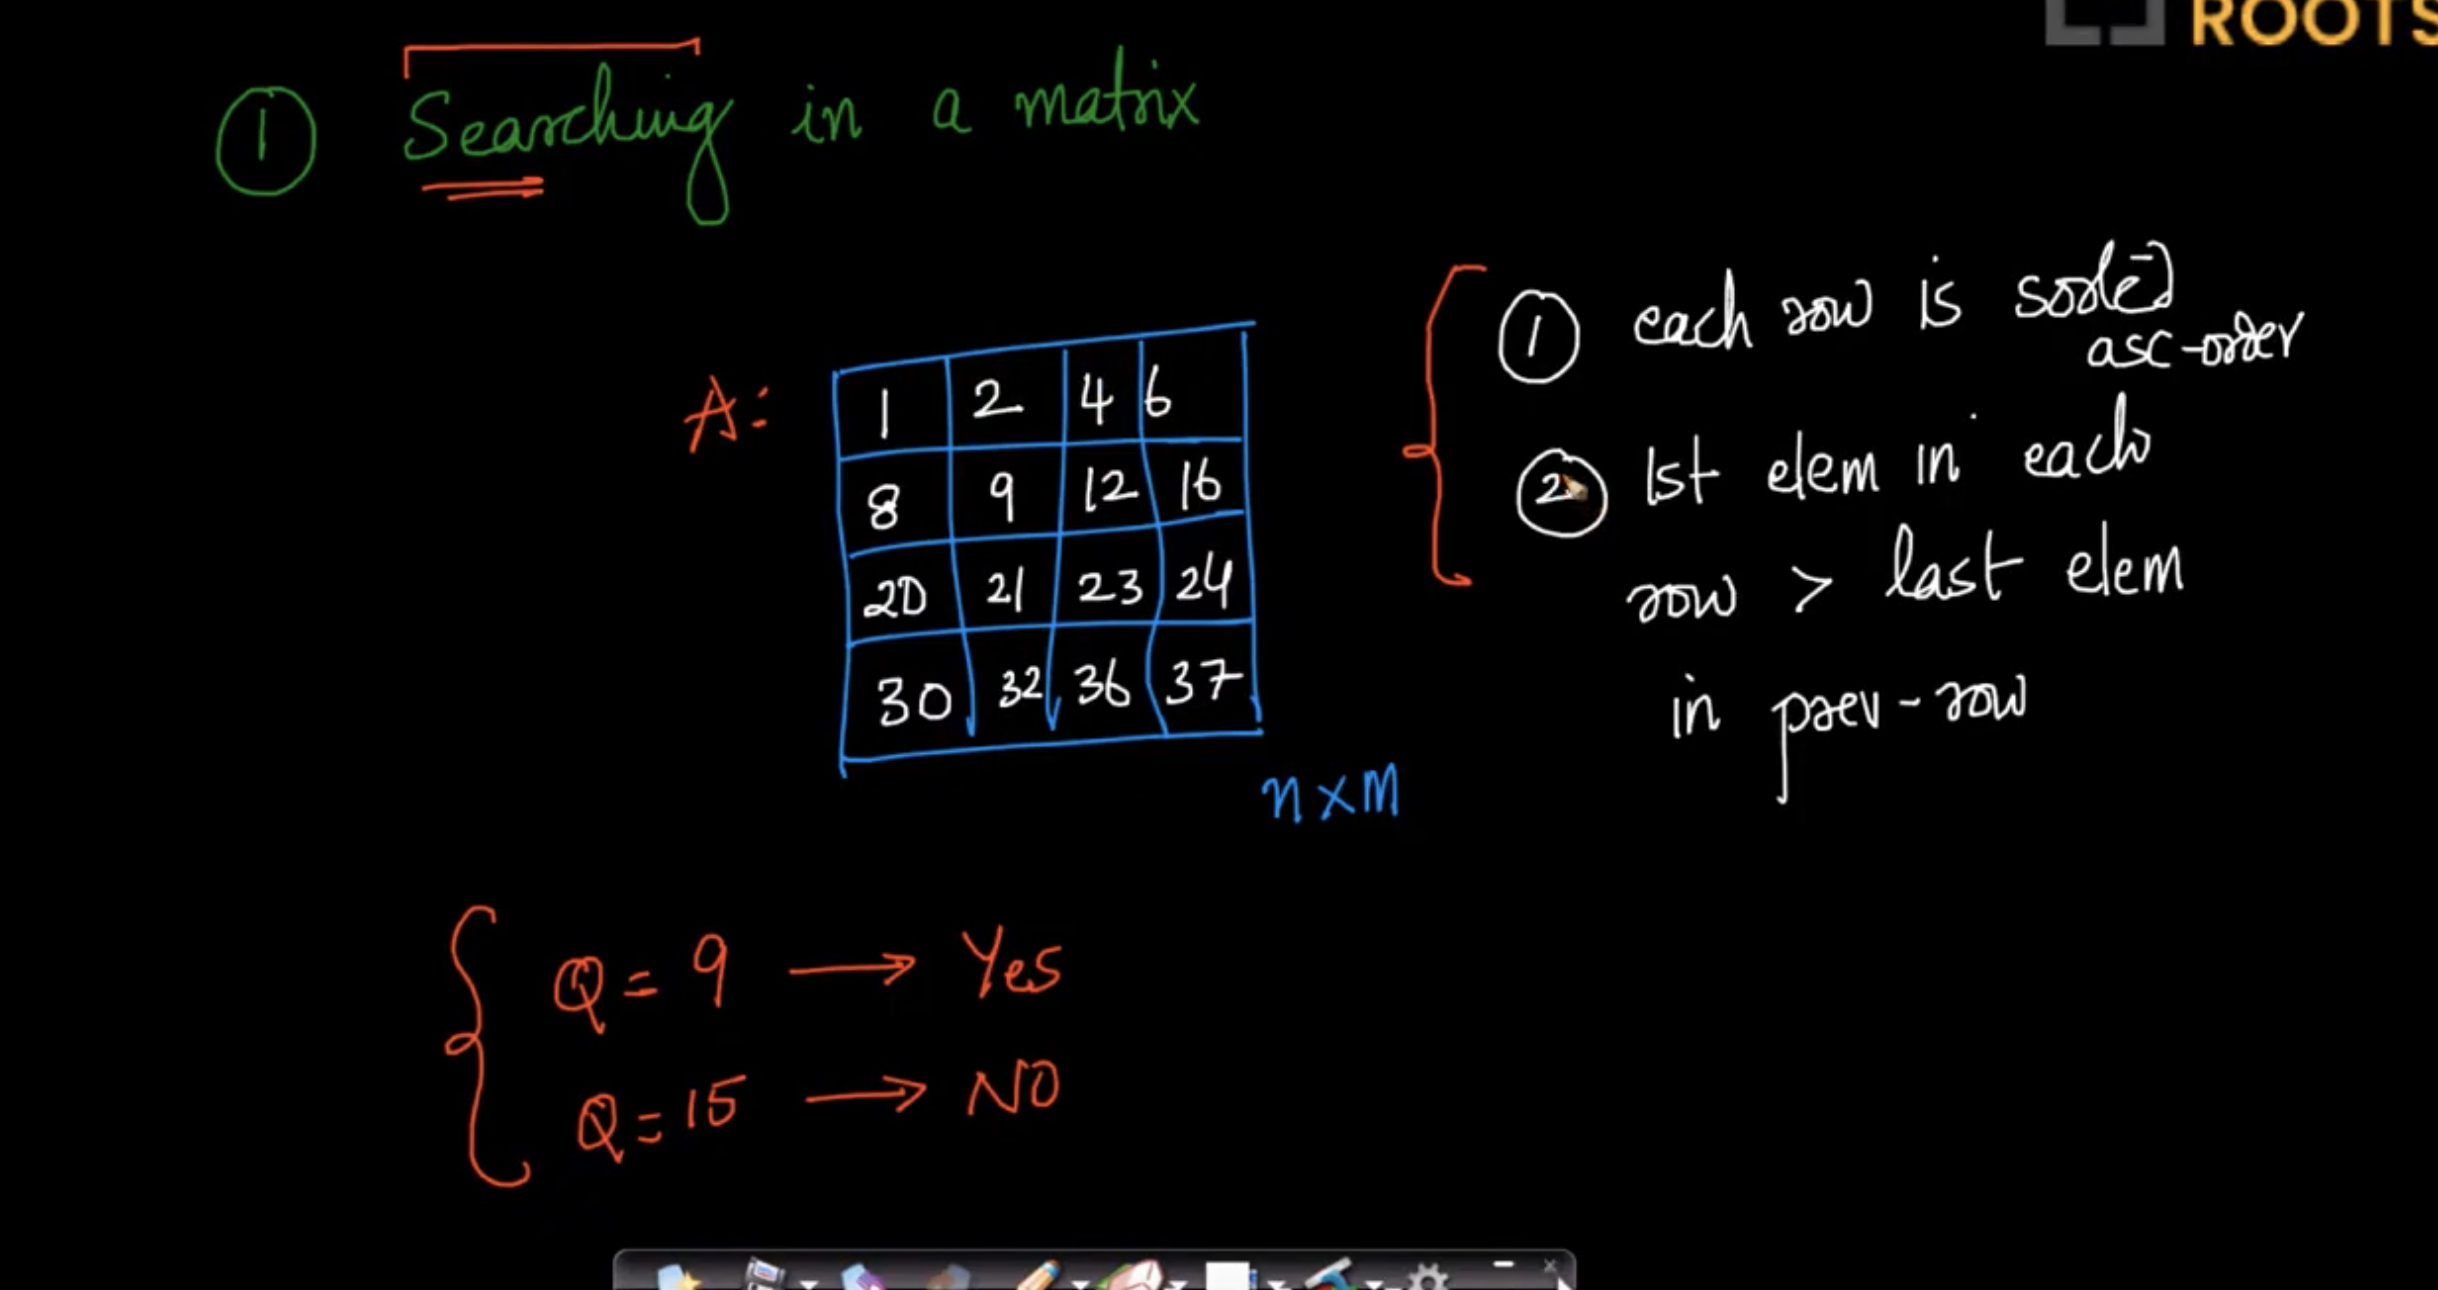 ROOTS
1 Searching in a matrix
A:
1 2 4 6
8 9 12 16
20 21 23 24
30 32 36 37
n x m
1 each row is sorted
asc-order
2 1st elem in each
row > last elem
in prev-row
Q = 9 → Yes
Q = 15 → NO